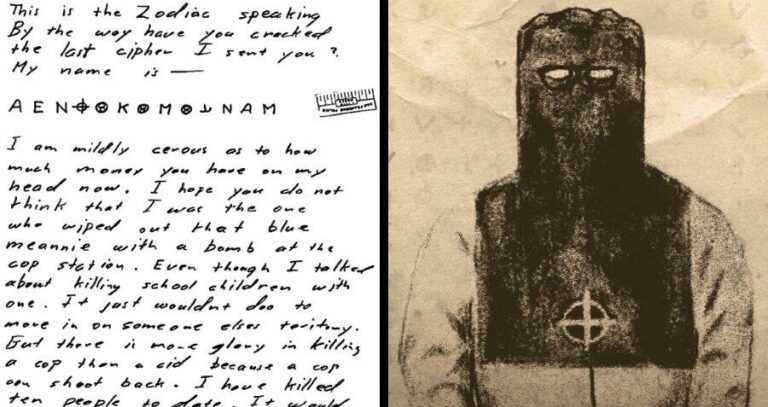 This is the Zodiac speaking
By the way have you cracked
the last cipher I sent you?
My name is —
A E N ⊕ ⊗ K ⊗ M ⊗ N A M
I am mildly cerous as to how
much money you have on my
head now. I hope you do not
think that I was the one
who wiped out that blue
meannie with a bomb at the
cop station. Even though I talked
about killing school children with
one. It just wouldnt doo to
move in on someone elses teritory.
But there is more glory in killing
a cop than a cid because a cop
can shoot back. I have killed
ten people to date. It would